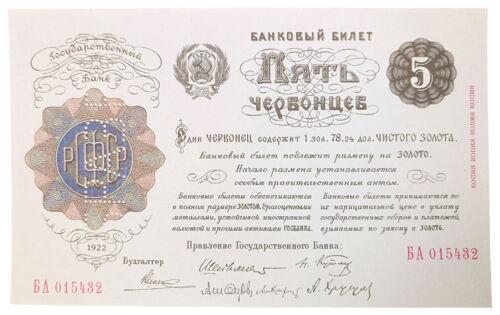 Государственный
Банк
РСФСР
1922
БАНКОВЫЙ БИЛЕТ
ПЯТЬ
ЧЕРВОНЦЕВ
5
Один ЧЕРВОНЕЦ содержит 1 зол. 78.24 дол. ЧИСТОГО ЗОЛОТА.
Банковый билет подлежит размену на ЗОЛОТО.
Начало размена устанавливается
особым правительственным актом.
Банковые билеты обеспечиваются
в полном размере ЗОЛОТОМ, драгоценными
металлами, устойчивой иностранной
валютой и прочими активами ГОСБАНКА.
Банковые билеты принимаются по
их нарицательной цене в уплату
государственных сборов и платежей
взимаемых по закону в ЗОЛОТЕ.
Правление Государственного Банка:
Бухгалтер
БА 015432
БА 015432
КОПИЯ КОПИЯ КОПИЯ КОПИЯ